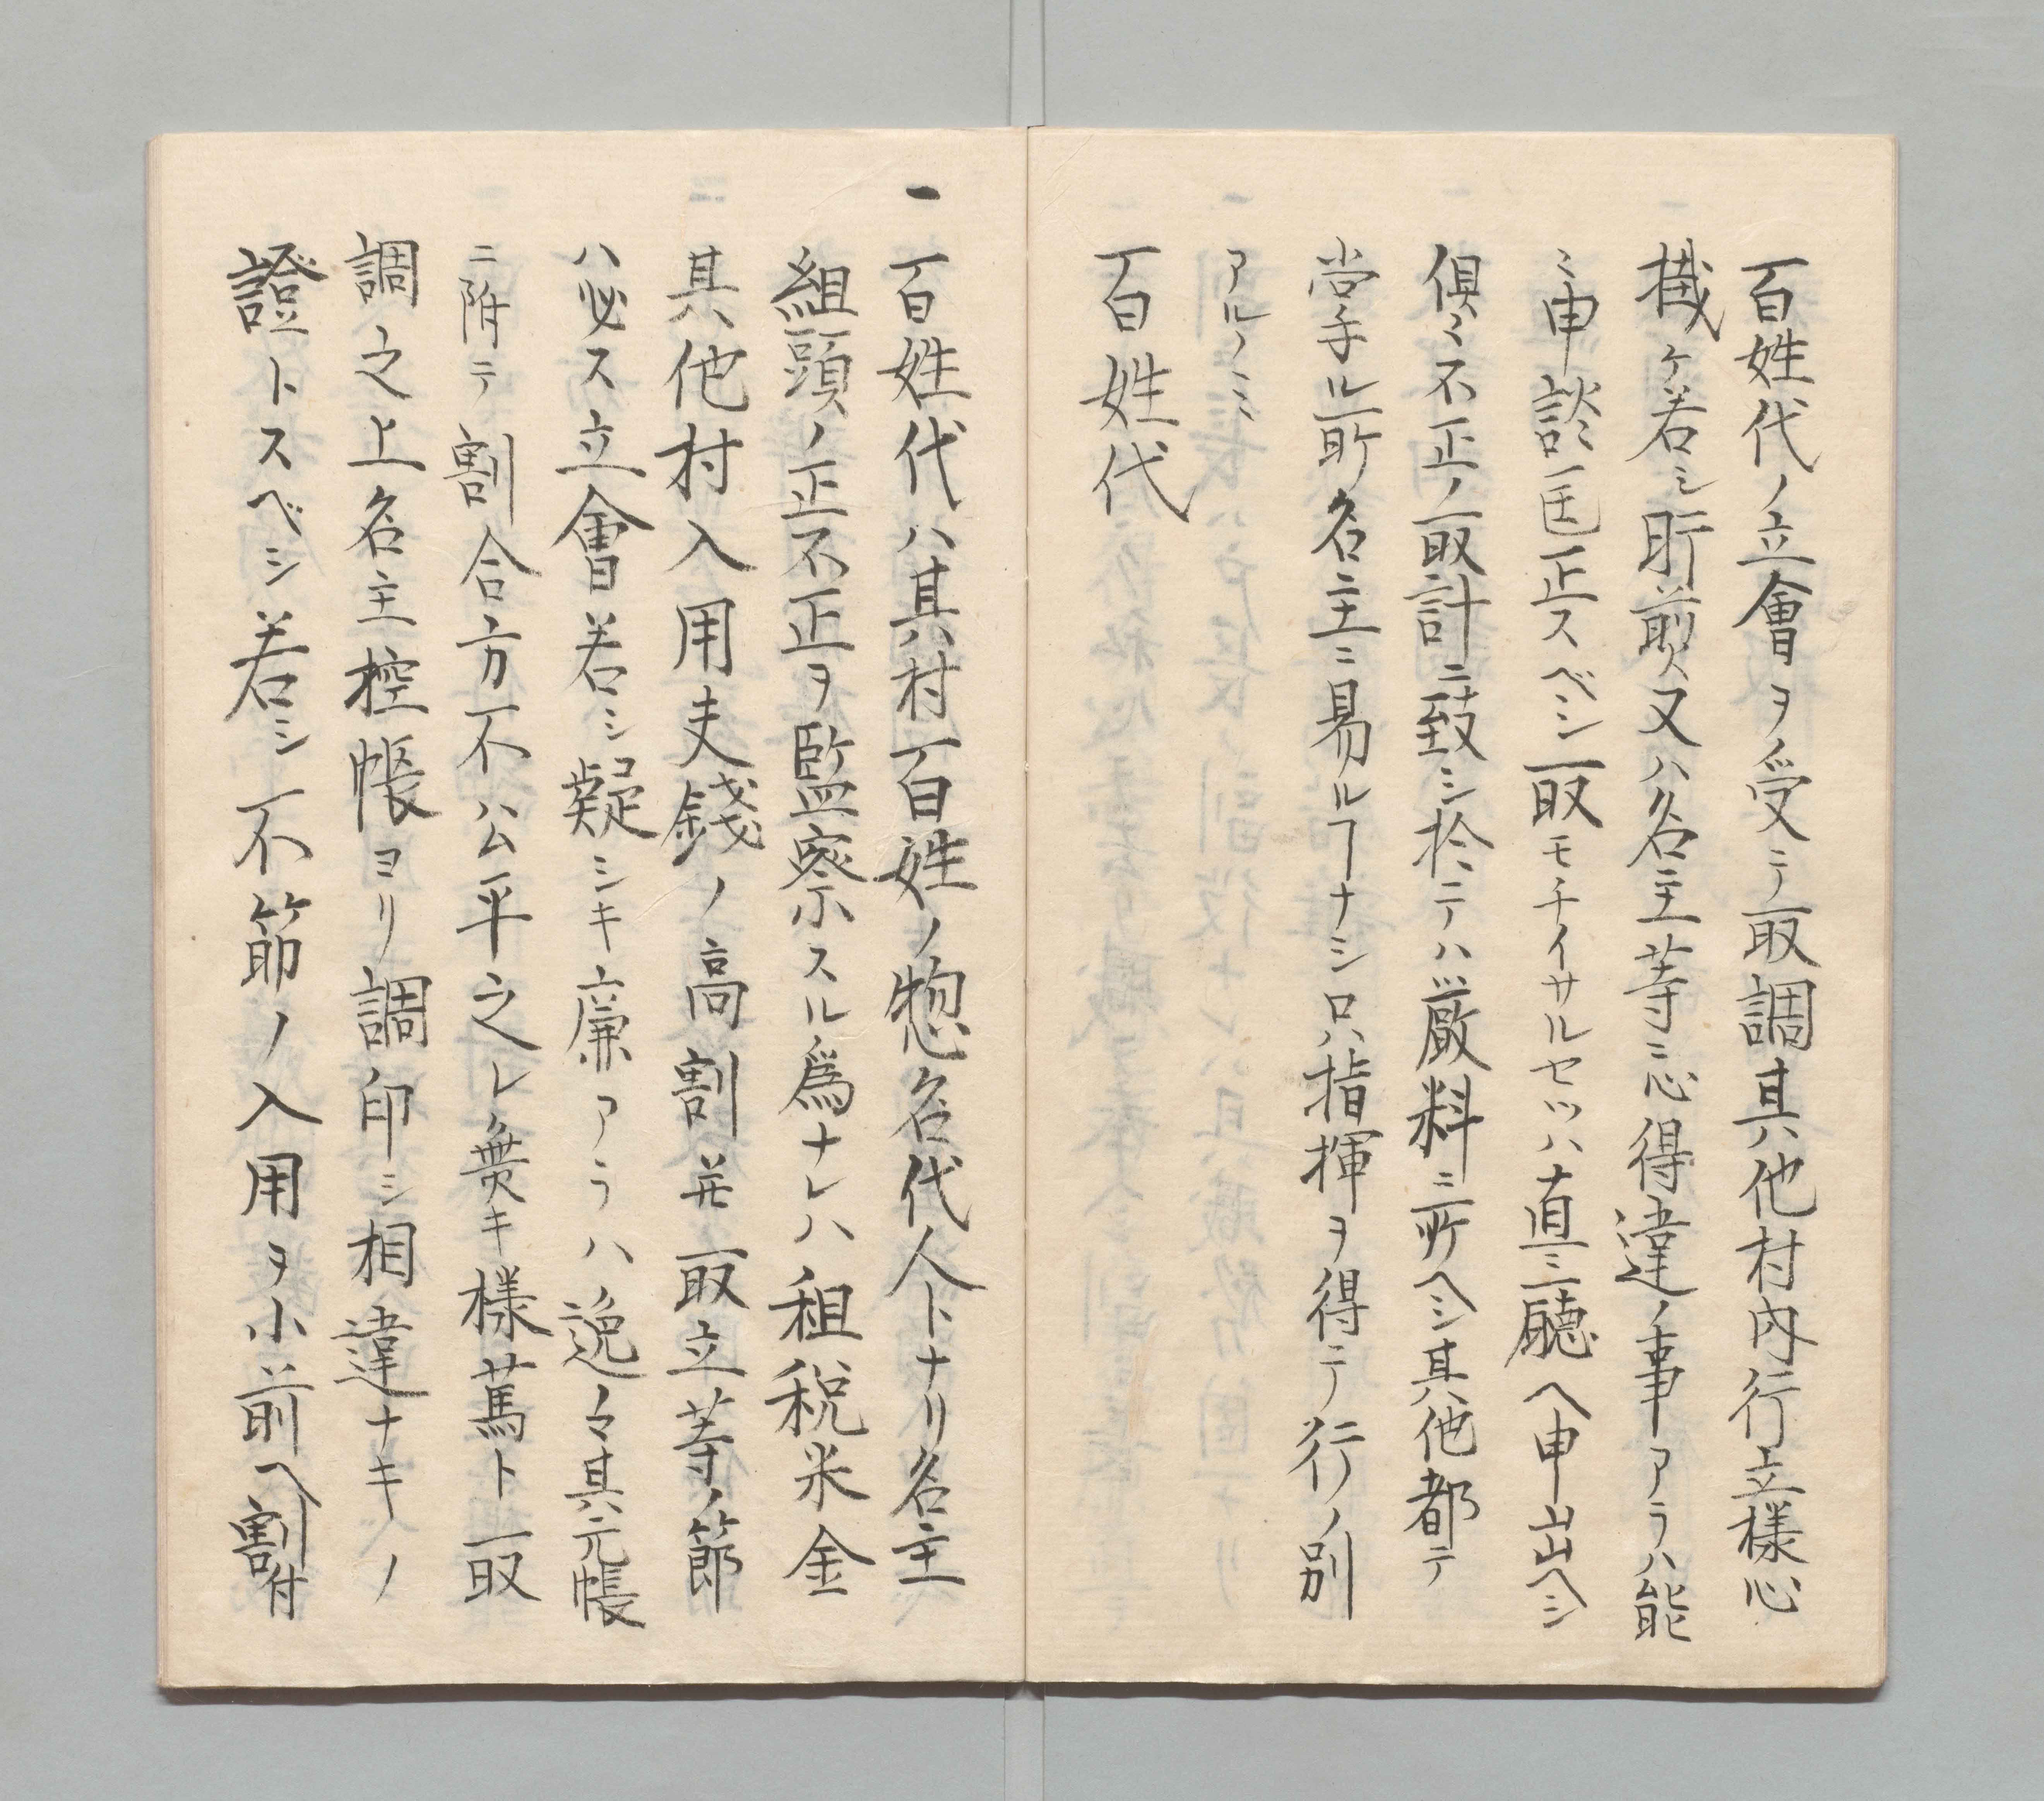 百姓代ノ立會ヲ受テ取調其他村内行立様心
掛ケ若シ肝煎又ハ名主等ニ心得違ノ事アラハ能
ミ申談シ匡正スベシ取モチイサルセツハ直ニ廳ヘ申出ヘシ
倶ミ不正ノ取計ニ致シ於テハ厳科ニ所ヘシ其他都テ
掌ル所名主ニ易ルヿナシ只指揮ヲ得テ行ノ別
アルノミ
百姓代
一百姓代ハ其村百姓ノ惣名代人トナリ名主
組頭ノ正不正ヲ監察スル為ナレハ租税米金
其他村入用夫錢ノ高割并取立等ノ節
ハ必ス立會若シ疑シキ廉アラハ逸々其元帳
ニ附テ割合方不公平之レ無キ様篤ト取
調之上名主控帳ヨリ調印シ相違ナキノ
證トスベシ若シ不節ノ入用ヲ小前ヘ割付